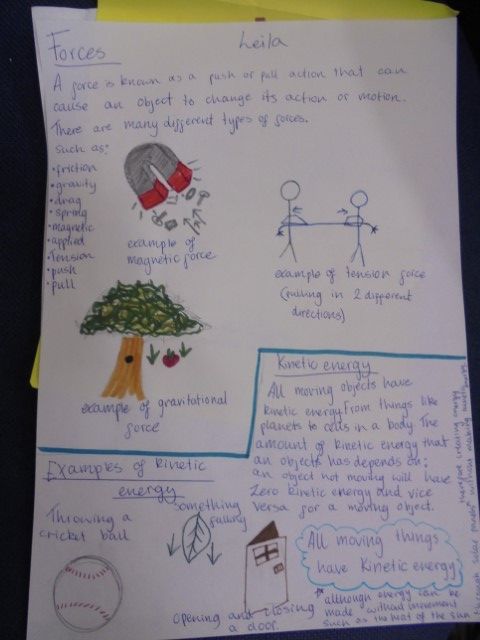 Forces
Leila
A force is known as a push or pull action that can
cause an object to change its action or motion.
There are many different types of forces.
such as:
• friction
• gravity
• drag
• spring
• magnetic
• applied
• Tension
• push
• pull
example of
magnetic force
example of tension force
(pulling in 2 different
directions)
example of gravitational
force
Kinetic energy
All moving objects have
kinetic energy From things like
planets to cells in a body. The
amount of kinetic energy that
an objects has depends on:
an object not moving will have
Zero kinetic energy and vice
versa for a moving object.
Examples of kinetic
energy
Throwing a
cricket ball
something
falling
opening and closing
a door.
All moving things
have Kinetic energy
* although energy can be
made without movement
such as the heat of the sun
through solar panels without making
creating energy